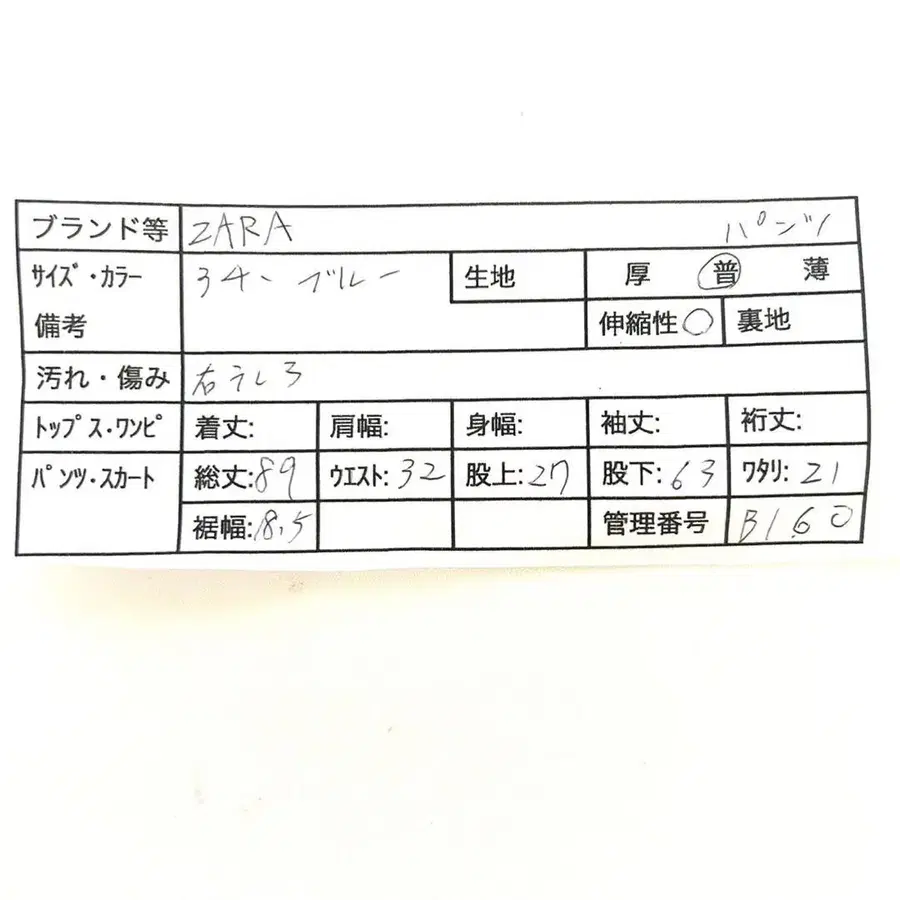 ブランド等 ZARA パンツ
サイズ・カラー 34、ブルー 生地 厚 普 薄
備考 伸縮性○ 裏地
汚れ・傷み 右うしろ
トップス・ワンピ 着丈: 肩幅: 身幅: 袖丈: 裄丈:
パンツ・スカート 総丈:89 ウエスト:32 股上:27 股下:63 ワタリ:21
裾幅:18.5 管理番号 B160